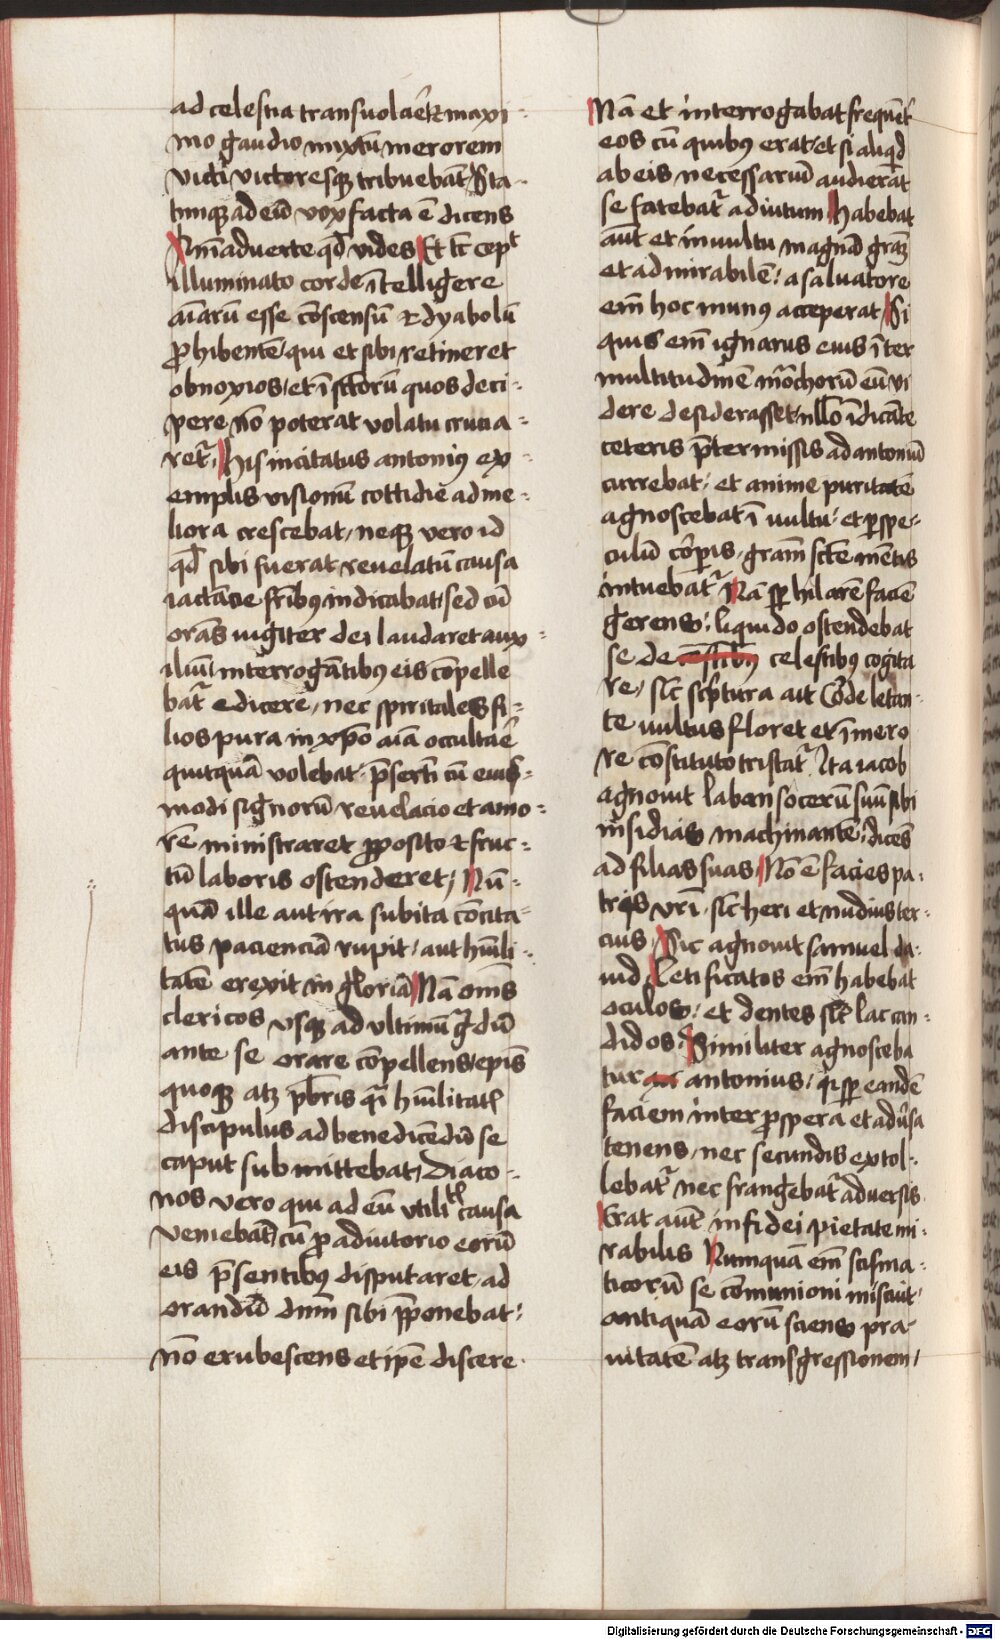 ad celestia transuolare ⁊ maxi-
mo gaudio mixtū merorem
victi victoresq; tribuebāt Sta-
timq; ad eū vox facta ē dicens
Animaduerte qd̄ vides Et tc̄ cepᵗ
illuminato corde ītelligere
aīarū esse cōscensū ⁊ dyabolū
ꝓhibentē qui et sibi retineret
obnoxios, et ī sctōrū quos deci-
pere nō poterat volatu crucia-
retᷣ, His incitatus antoniꝰ ex-
emplis visionū cottidie ad me-
liora crescebat, neq; vero id
qd̄ sibi fuerat reuelatū causa
iactācie fribꝰ indicabat, sed cū
orās iugiter dei laudaret aux-
iliū interrogātibꝰ eis cōpelle
batᷣ edicere, nec spiritales fi-
lios pura in xp̄o aīa occultar̄e
quitquā volebat, p̄serti cū eius-
modi signorū reuelacio et amo-
rē ministraret ꝓposito ⁊ fruc-
tū laboris ostenderet, Nū-
quā ille aut ira subita cōcita-
tus pacienciā rupit, aut hūili-
tatē erexit in gloriā Nā om̄s
clericos vsq; ad vltimū gͣdū
ante se orare cōpellens, ep̄is
quoq; atꝫ p̄bris qͣi hūilitatꝭ
discipulus ad benedicēdū se
caput submittebat, Diaco-
nos vero qui ad eū vtilitꝭ causa
veniebāt cū ꝓ adiutorio eorū
eis p̄sentibꝰ disputaret, ad
orandū dnm̄ sibi p̄ponebat,
nō erubescens et ip̄e discere
Nā et interrogabat frequēt̄
eos cū quibꝰ erat, et si aliqd
ab eis necessariū audierat
se fatebatᷣ adiutum Habebat
aūt et in uultu magnā gratꝫ
et admirabilē, a saluatore
em̄ hoc munꝰ acceperat Si
quis em̄ ignarus eius īter
multitudinē mōchorū eū vi
dere desiderasset, nllō īdicāte
ceteris p̄termissis ad antoniū
currebat, et anime puritatē
agnoscebat ī uultu, et ꝑ spe-
culū corꝑis, gram̄ scte mētis
intuebatᷣ Nā sꝑ hilarē faciē
gerens, liquido ostendebat
se de celestibꝰ cogita
re, sic̄ scptura ait Corde letan-
te uultus floret et ī mero
re cōstituto tristatᷣ Ita iacob
agnouit laban socerū suū sibi
insidias machinantē, dicēs
ad filias suas Nō ē facies pa-
tris vrī, sic̄ heri et nudius ter-
cius Sic agnouit samuel da-
uid Letificatos em̄ habebat
oculos, et dentes sic̄ lac can-
didos, Similiter agnosceba
tur antonius, qͥ sꝑ eandē
faciem inter ꝓspera et adūsa
tenens, nec secundis extol-
lebatᷣ nec frangebatᷣ aduersis
Erat aūt in fidei pietate mi-
rabilis Numquā em̄ scisma-
ticorū se cōmunioni miscuit,
antiquā eorū sciens pra-
uitatē atꝫ transgressionem,
Digitalisierung gefördert durch die Deutsche Forschungsgemeinschaft - DFG